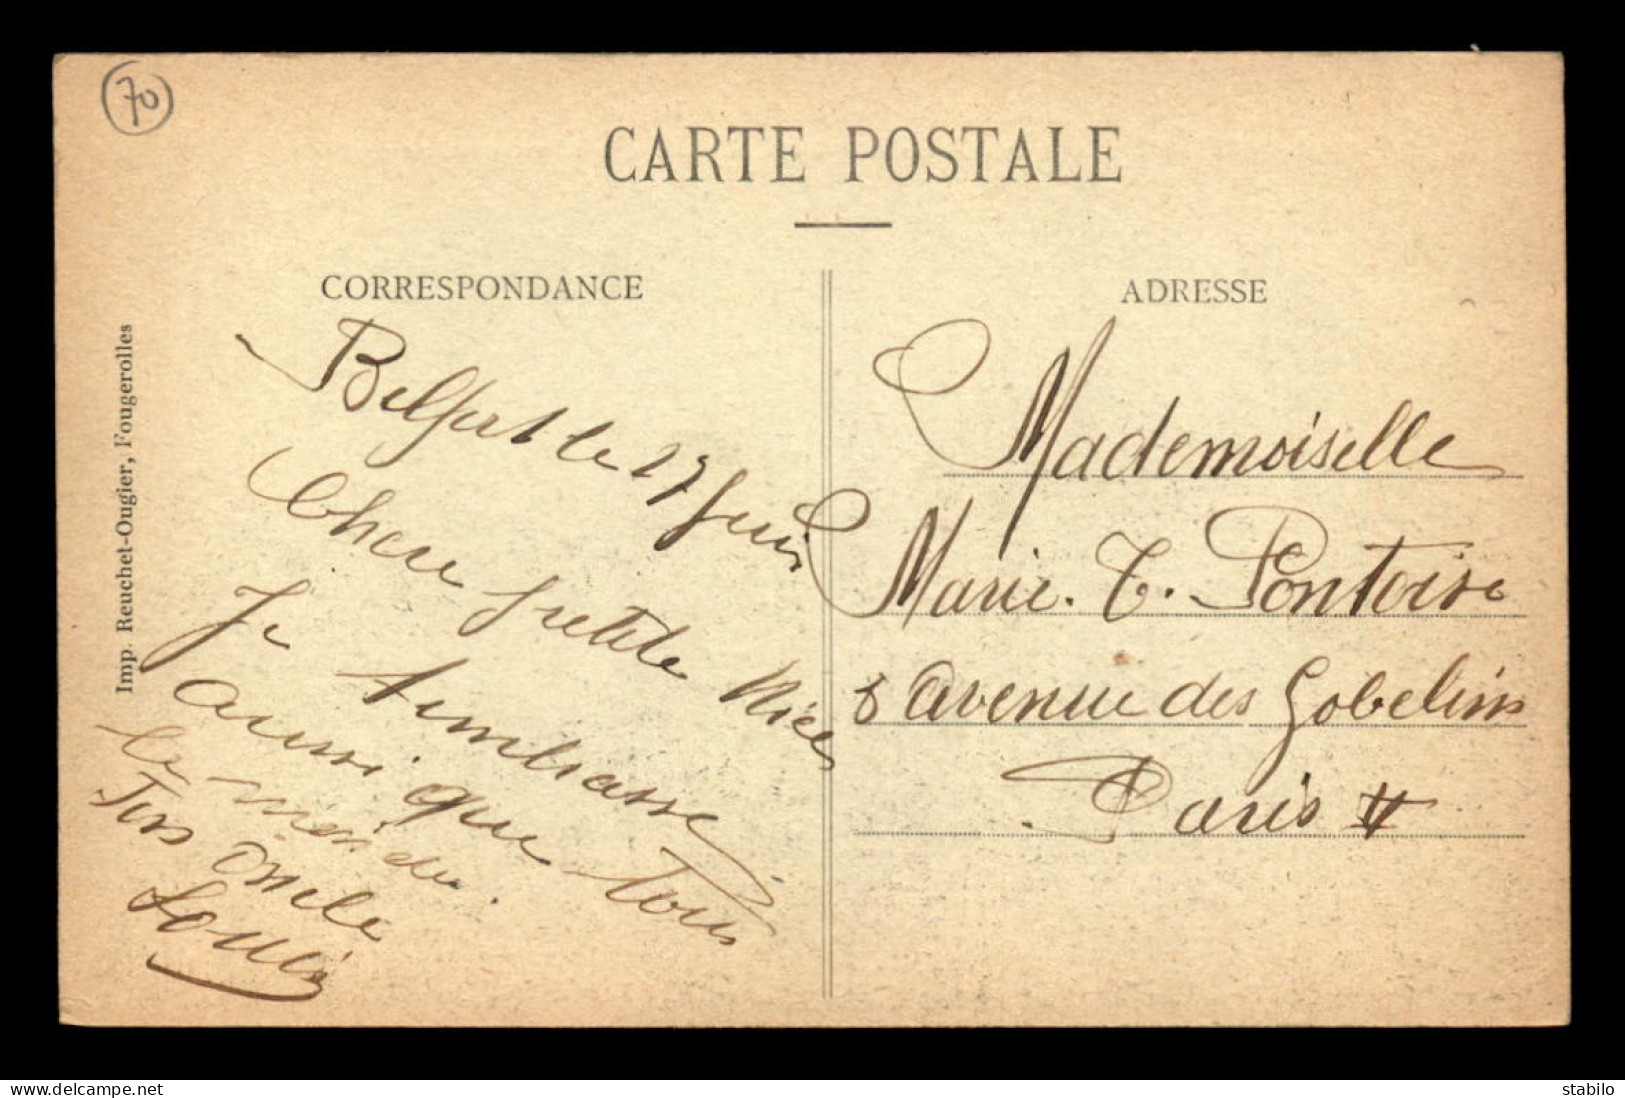 70
CARTE POSTALE
CORRESPONDANCE
ADRESSE
Imp. Reuchet-Ougier, Fougerolles
Belfort le 27 Juin
Chere petite Niece
Je t'embrasse
aussi que tous
le
Ton Oncle
Louis
Mademoiselle
Marie. T. Pontoise
8 Avenue des Gobelins
Paris V
www.delcampe.net
stabilo